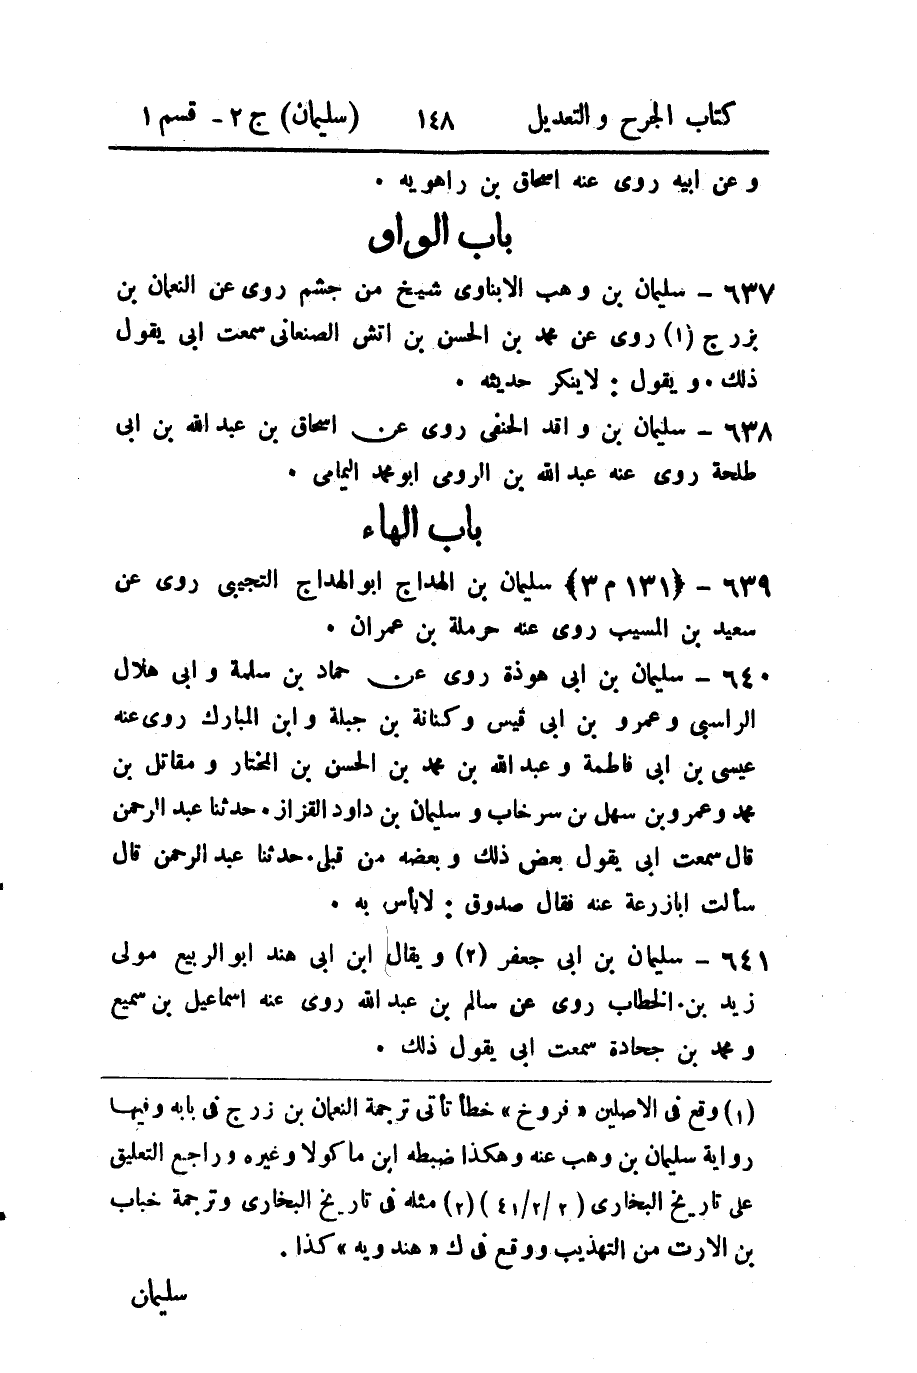 كتاب الجرح والتعديل ١٤٨ (سليمان) ج ٢ - قسم ١
وعن ابيه روى عنه اسحاق بن راهويه .
باب الواو
٦٣٧ - سليمان بن وهب الابناوى شيخ من جشم روى عن النعمان بن
بزرج (١) روى عن محمد بن الحسن بن اتش الصنعانى سمعت ابى يقول
ذلك . ويقول : لاينكر حديثه .
٦٣٨ - سليمان بن واقد الحنفى روى عن اسحاق بن عبد الله بن ابى
طلحة روى عنه عبد الله بن الرومى ابو محمد اليمامى .
باب الهاء
٦٣٩ - {١٣١ م ٣} سليمان بن الهداج ابو الهداج التجيبى روى عن
سعيد بن المسيب روى عنه حرملة بن عمران .
٦٤٠ - سليمان بن ابى هوذة روى عن حماد بن سلمة وابى هلال
الراسبى وعمرو بن ابى قيس وكنانة بن جبلة وابن المبارك روى عنه
عيسى بن ابى فاطمة وعبد الله بن محمد بن الحسن بن المختار ومقاتل بن
محمد وعمرو بن سهل بن سرخاب وسليمان بن داود القزاز . حدثنا عبد الرحمن
قال سمعت ابى يقول بعض ذلك وبعضه من قبلى . حدثنا عبد الرحمن قال
سألت ابا زرعة عنه فقال صدوق : لا بأس به .
٦٤١ - سليمان بن ابى جعفر (٢) ويقال ابن ابى هند ابو الربيع مولى
زيد بن الخطاب روى عن سالم بن عبد الله روى عنه اسماعيل بن سميع
ومحمد بن جحادة سمعت ابى يقول ذلك .
(١) وقع فى الاصلين « فروخ » خطأ تأتى ترجمة النعمان بن زرج فى بابه وفيها
رواية سليمان بن وهب عنه وهكذا ضبطه ابن ماكولا وغيره وراجع التعليق
على تاريخ البخارى ( ٢ /٢/ ٤١ ) (٢) مثله فى تاريخ البخارى وترجمة خباب
بن الارت من التهذيب ووقع فى ك « هندويه » كذا .
سليمان